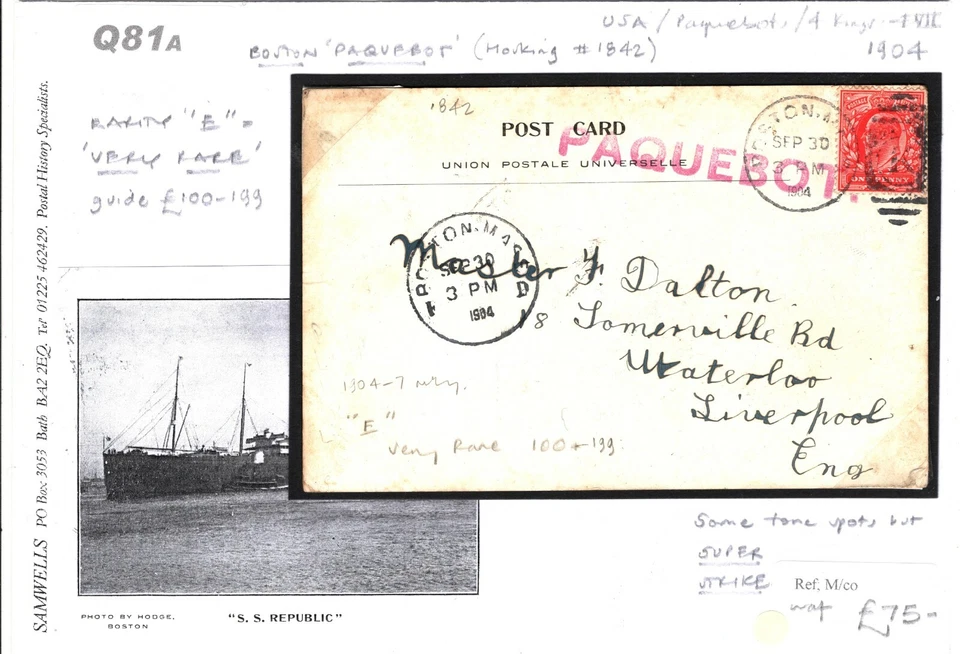 Q81A
USA / Paquebots / 4 Kings - EVII
1904
BOSTON 'PAQUEBOT' (Marking #1842)
RARITY "E" =
'VERY RARE'
guide £100-199
SAMWELLS PO Box 3053 Bath BA2 2EQ. Tel 01225 462429. Postal History Specialists.
1842
POST CARD
UNION POSTALE UNIVERSELLE
PAQUEBOT.
BOSTON, MA
SEP 30
3 PM
1904
POSTAGE
ONE PENNY
BOSTON, MASS
SEP 30
3 PM
1904
D
Master F. Dalton
18 Somerville Rd
Waterloo
Liverpool
Eng
1904-7
"E"
Very Rare 100-199
PHOTO BY HODGE,
BOSTON
"S. S. REPUBLIC"
Some tone spots but
SUPER
STRIKE
Ref, M/co
£75-